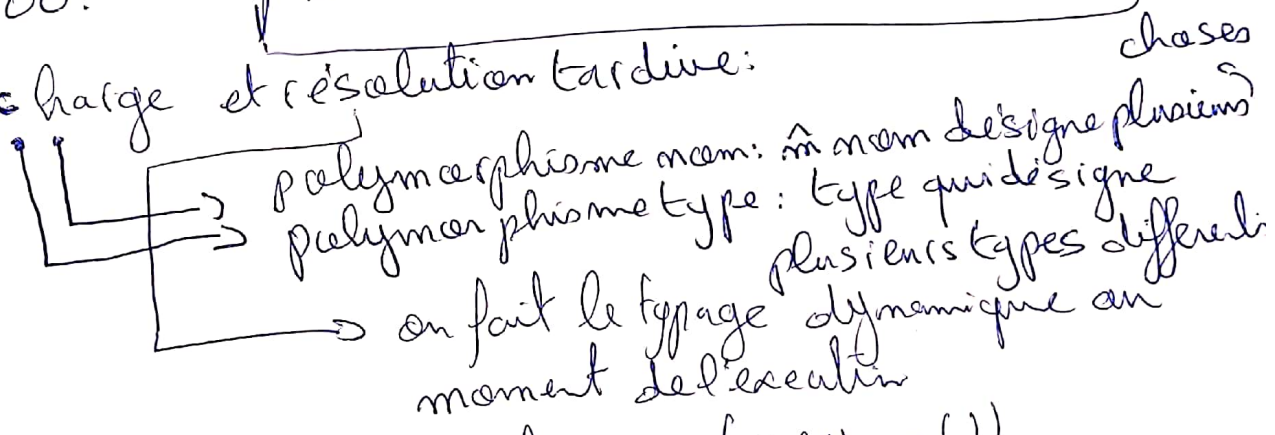 charge et résolution tardive:
choses
polymorphisme nom: m̂ nom désigne plusieurs
polymorphisme type: type qui désigne
plusieurs types différent
on fait le typage dynamique au
moment de l'execution